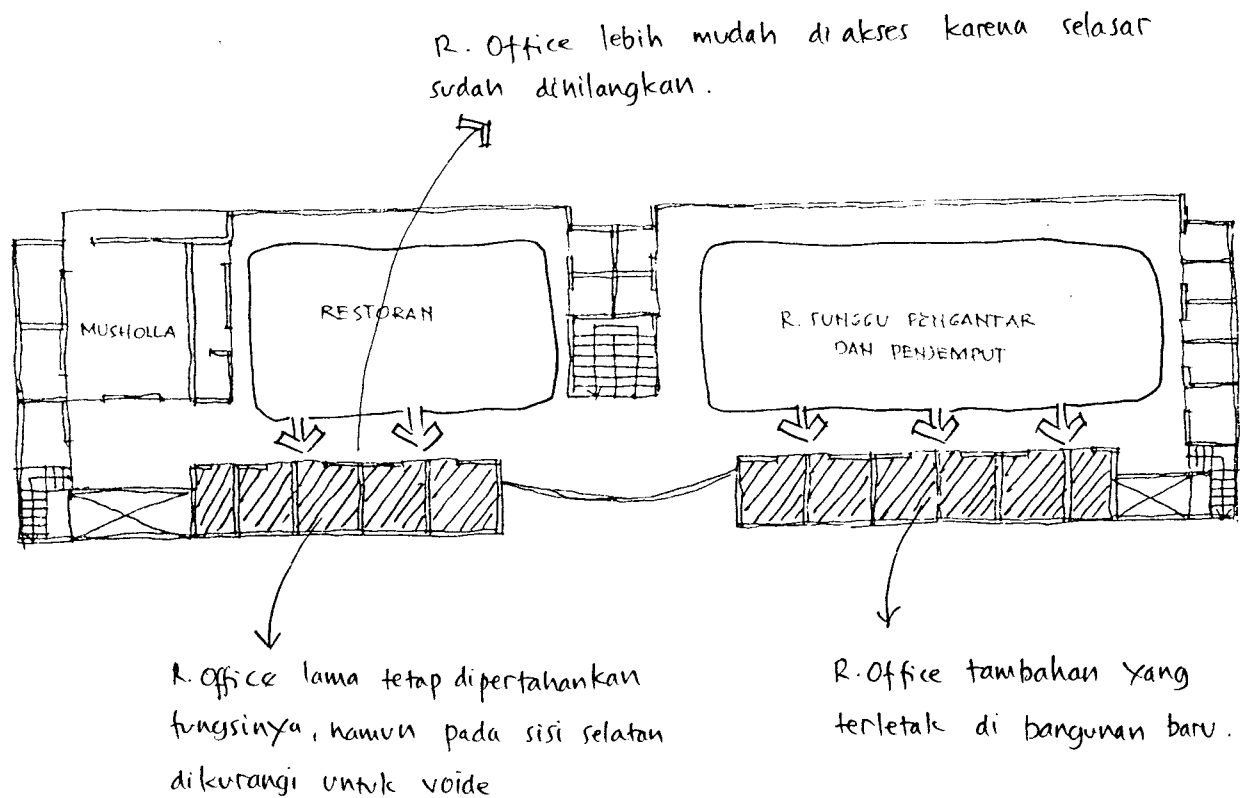 R. Office lebih mudah di akses karena selasar
sudah dihilangkan.
MUSHOLLA
RESTORAN
R. TUNGGU PENGANTAR
DAN PENJEMPUT
R. Office lama tetap dipertahankan
fungsinya, namun pada sisi selatan
dikurangi untuk voide
R. Office tambahan yang
terletak di bangunan baru.